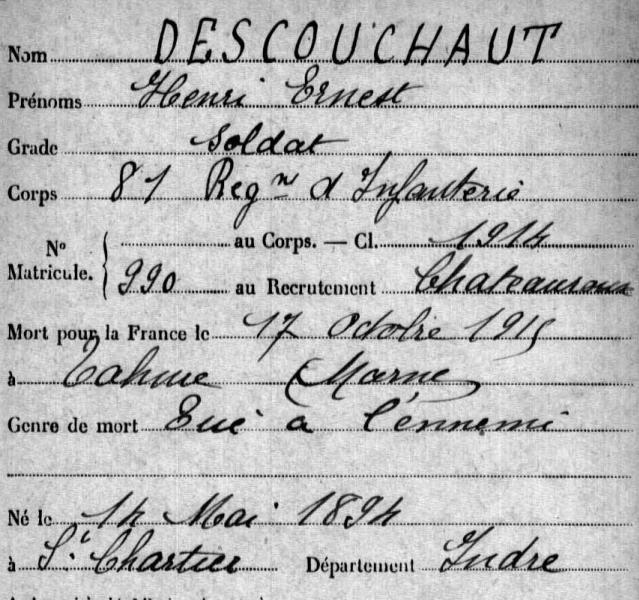 Nom DESCOUCHAUT
Prénoms Henri Ernest
Grade Soldat
Corps 81 Regnt d'Infanterie
au Corps. — Cl. 1914
N° Matricule. 990 au Recrutement Chateauroux
Mort pour la France le 17 Octobre 1915
à Tahure (Marne)
Genre de mort Tué à l'ennemi
Né le 14 Mai 1894
à St Chartier Département Indre